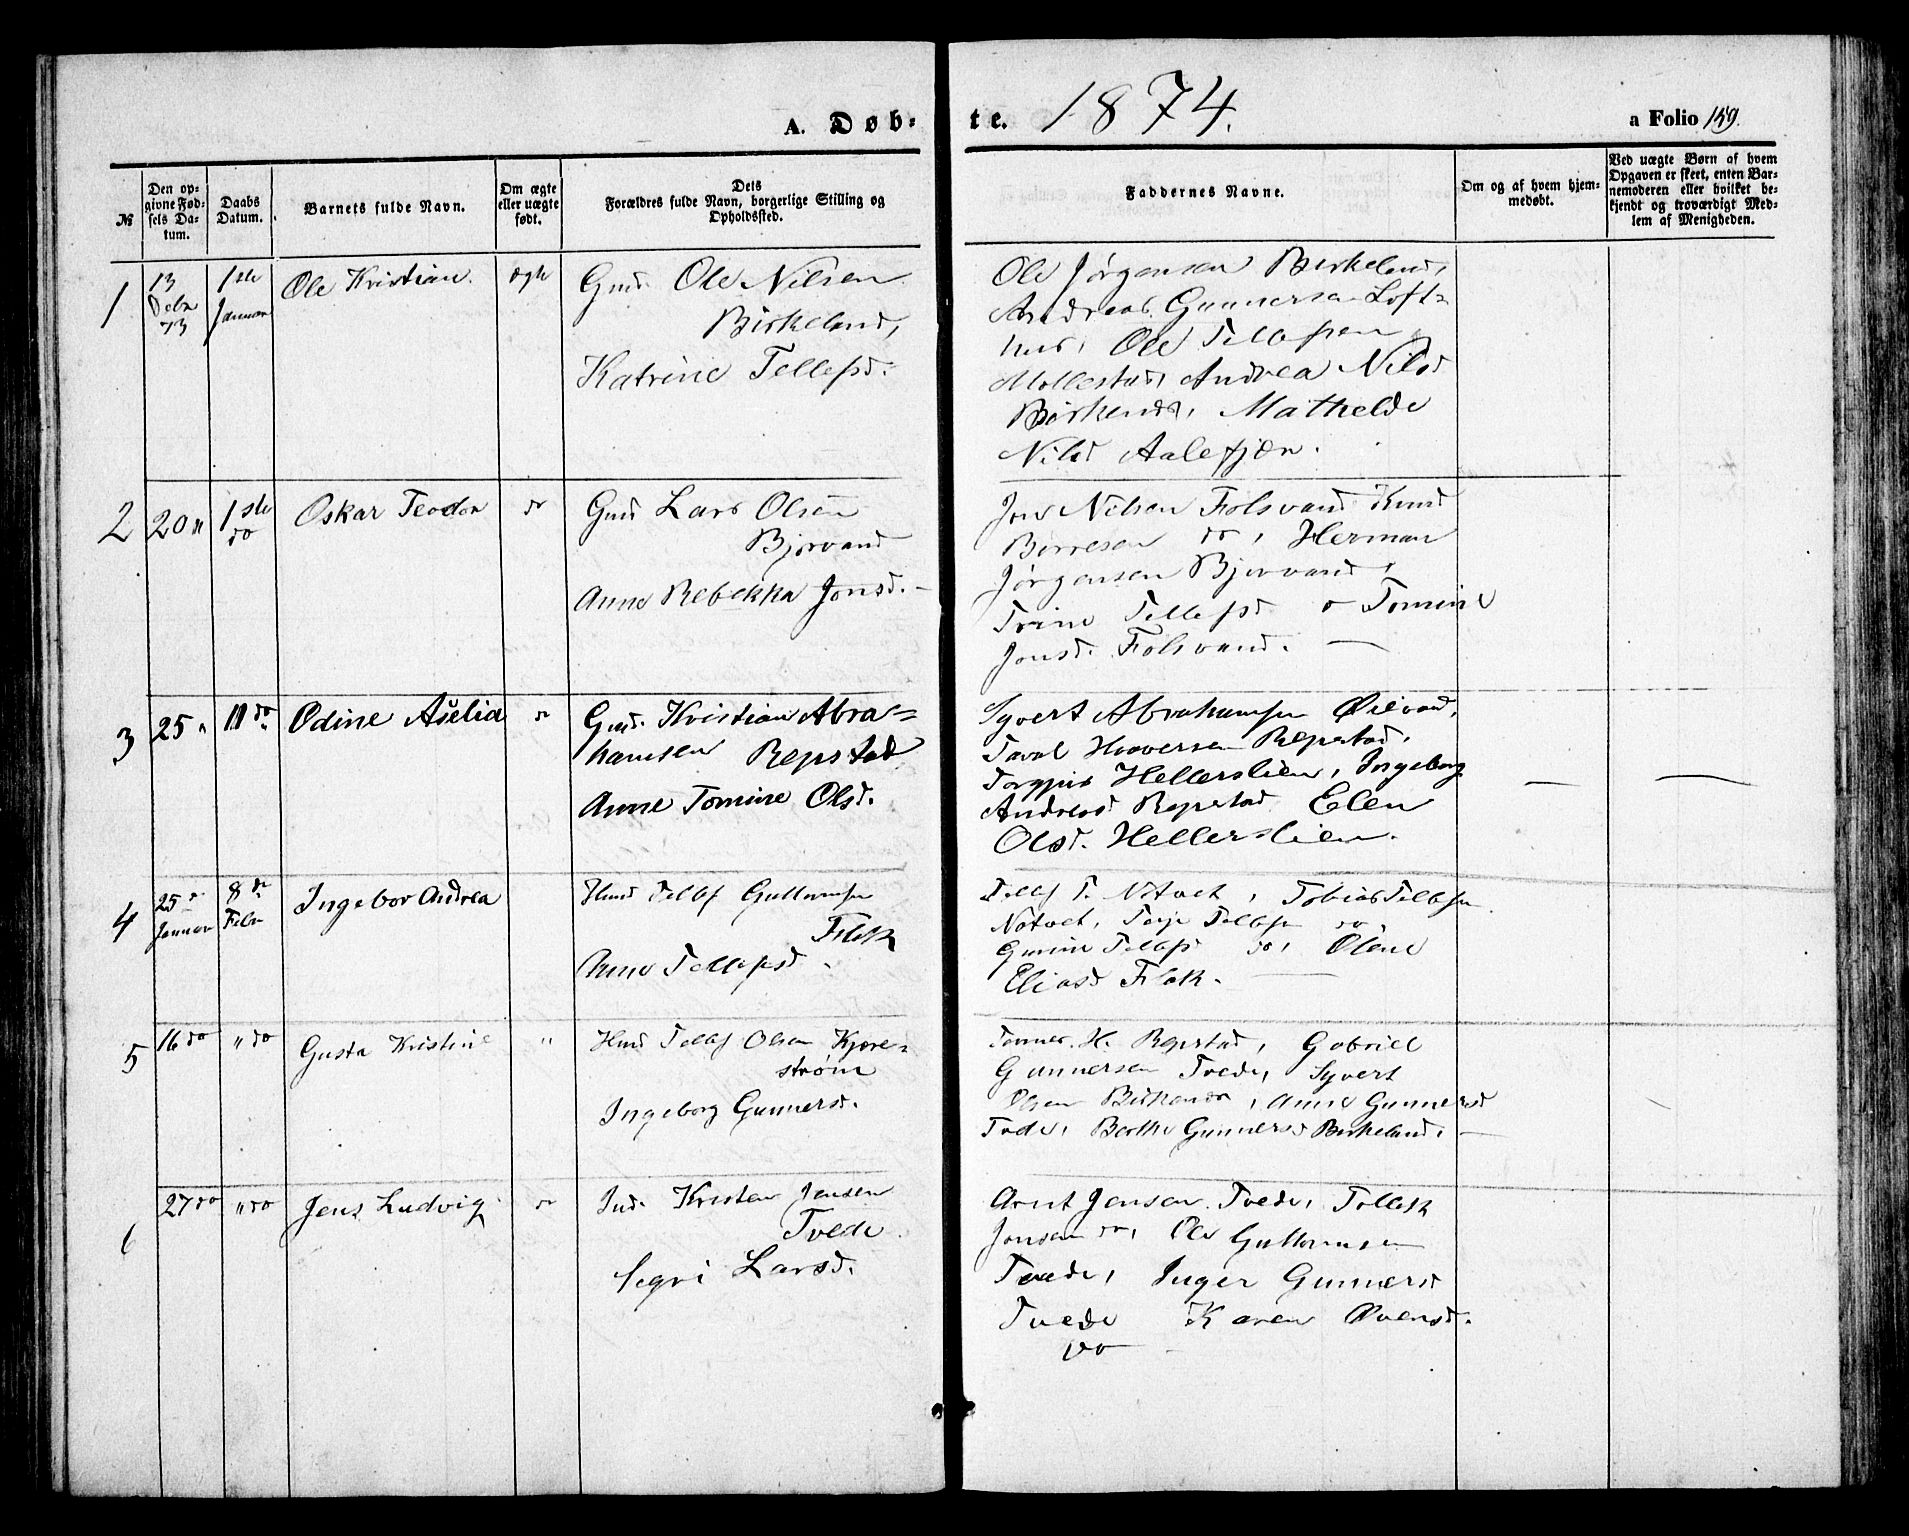 A. Døb-
te. 1874.
a Folio 159.
№
Den op-
givne Fød-
sels Da-
tum.
Daabs
Datum.
Barnets fulde Navn.
Om ægte
eller uægte
født.
Dets
Forældres fulde Navn, borgerlige Stilling og
Opholdssted.
Faddernes Navne.
Om og af hvem hjem-
medøbt.
Ved uægte Børn af hvem
Opgaven er skeet, enten Bar-
nemoderen eller hvilket be-
kjendt og troværdigt Med-
lem af Menigheden.
1
13
73
1ste
Januar
Ole Kristian.
ægte
Gmd. Ole Nilsen
Birkeland,
Katrine Tellefsd.
Ole Jørgensen Birkeland,
Andreas Gunnersen Loft-
hus, Ole Tellefsen
Mollestad, Andrea Nilsd
Birkend, Mathelde
Nilsd Aalefjær.
2
20 "
1ste
do
Oskar Teodor
do
Gmd Lars Olsen
Bjorvand
Anne Rebekka Jonsd. -
Jens Nilsen Folsvand Knud
Børresen do, Herman
Jørgensen Bjorvand,
Trine Tellefsd o Tomine
Jonsd. Folsvand. —
3
25 "
11 do
Odine Aselia
do
Gmd. Kristian Abra=
hamsen Repstad
Anne Tomine Olsd.
Syvert Abrahamsen Øievad,
Taral Haaversen Repstad,
Torgjus Hellerslien, Ingeborg
Andreasd Repstad Elen
Olsd. Hellerslien.
4
25 de
Januar
8 de
Febr
Ingebor Andrea
Hmd Tellef Guttormsen
Flak
Anne Tellefsd.
Tellef T. Nøtvet, Tobias Tellefsen
Nøtvet, Terje Tellefsen do,
Gunine Tellefsd do, Olene
Eliasd Flak. —
5
16 do
" do
Gusta Kristine
"
Hmd Tellef Olsen Kjore-
strøm
Ingeborg Gunnersd.
Tarmer. H. Repstad, Gabriel
Gunnersen Tvede, Syvert
Olsen Birkend, Anne Gunnersd
Tvede, Berthe Gunnersd Birkeland. —
6
27 do
" do
Jens Ludvig
do
Ind. Kristen Jensen
Tvede.
Segri Larsd.
Arnt Jensen Tvede, Tellef
Jonsen do, Ole Guttormsen
Tvede, Inger Gunnersd
Tvede Karen Øvensd.
do —